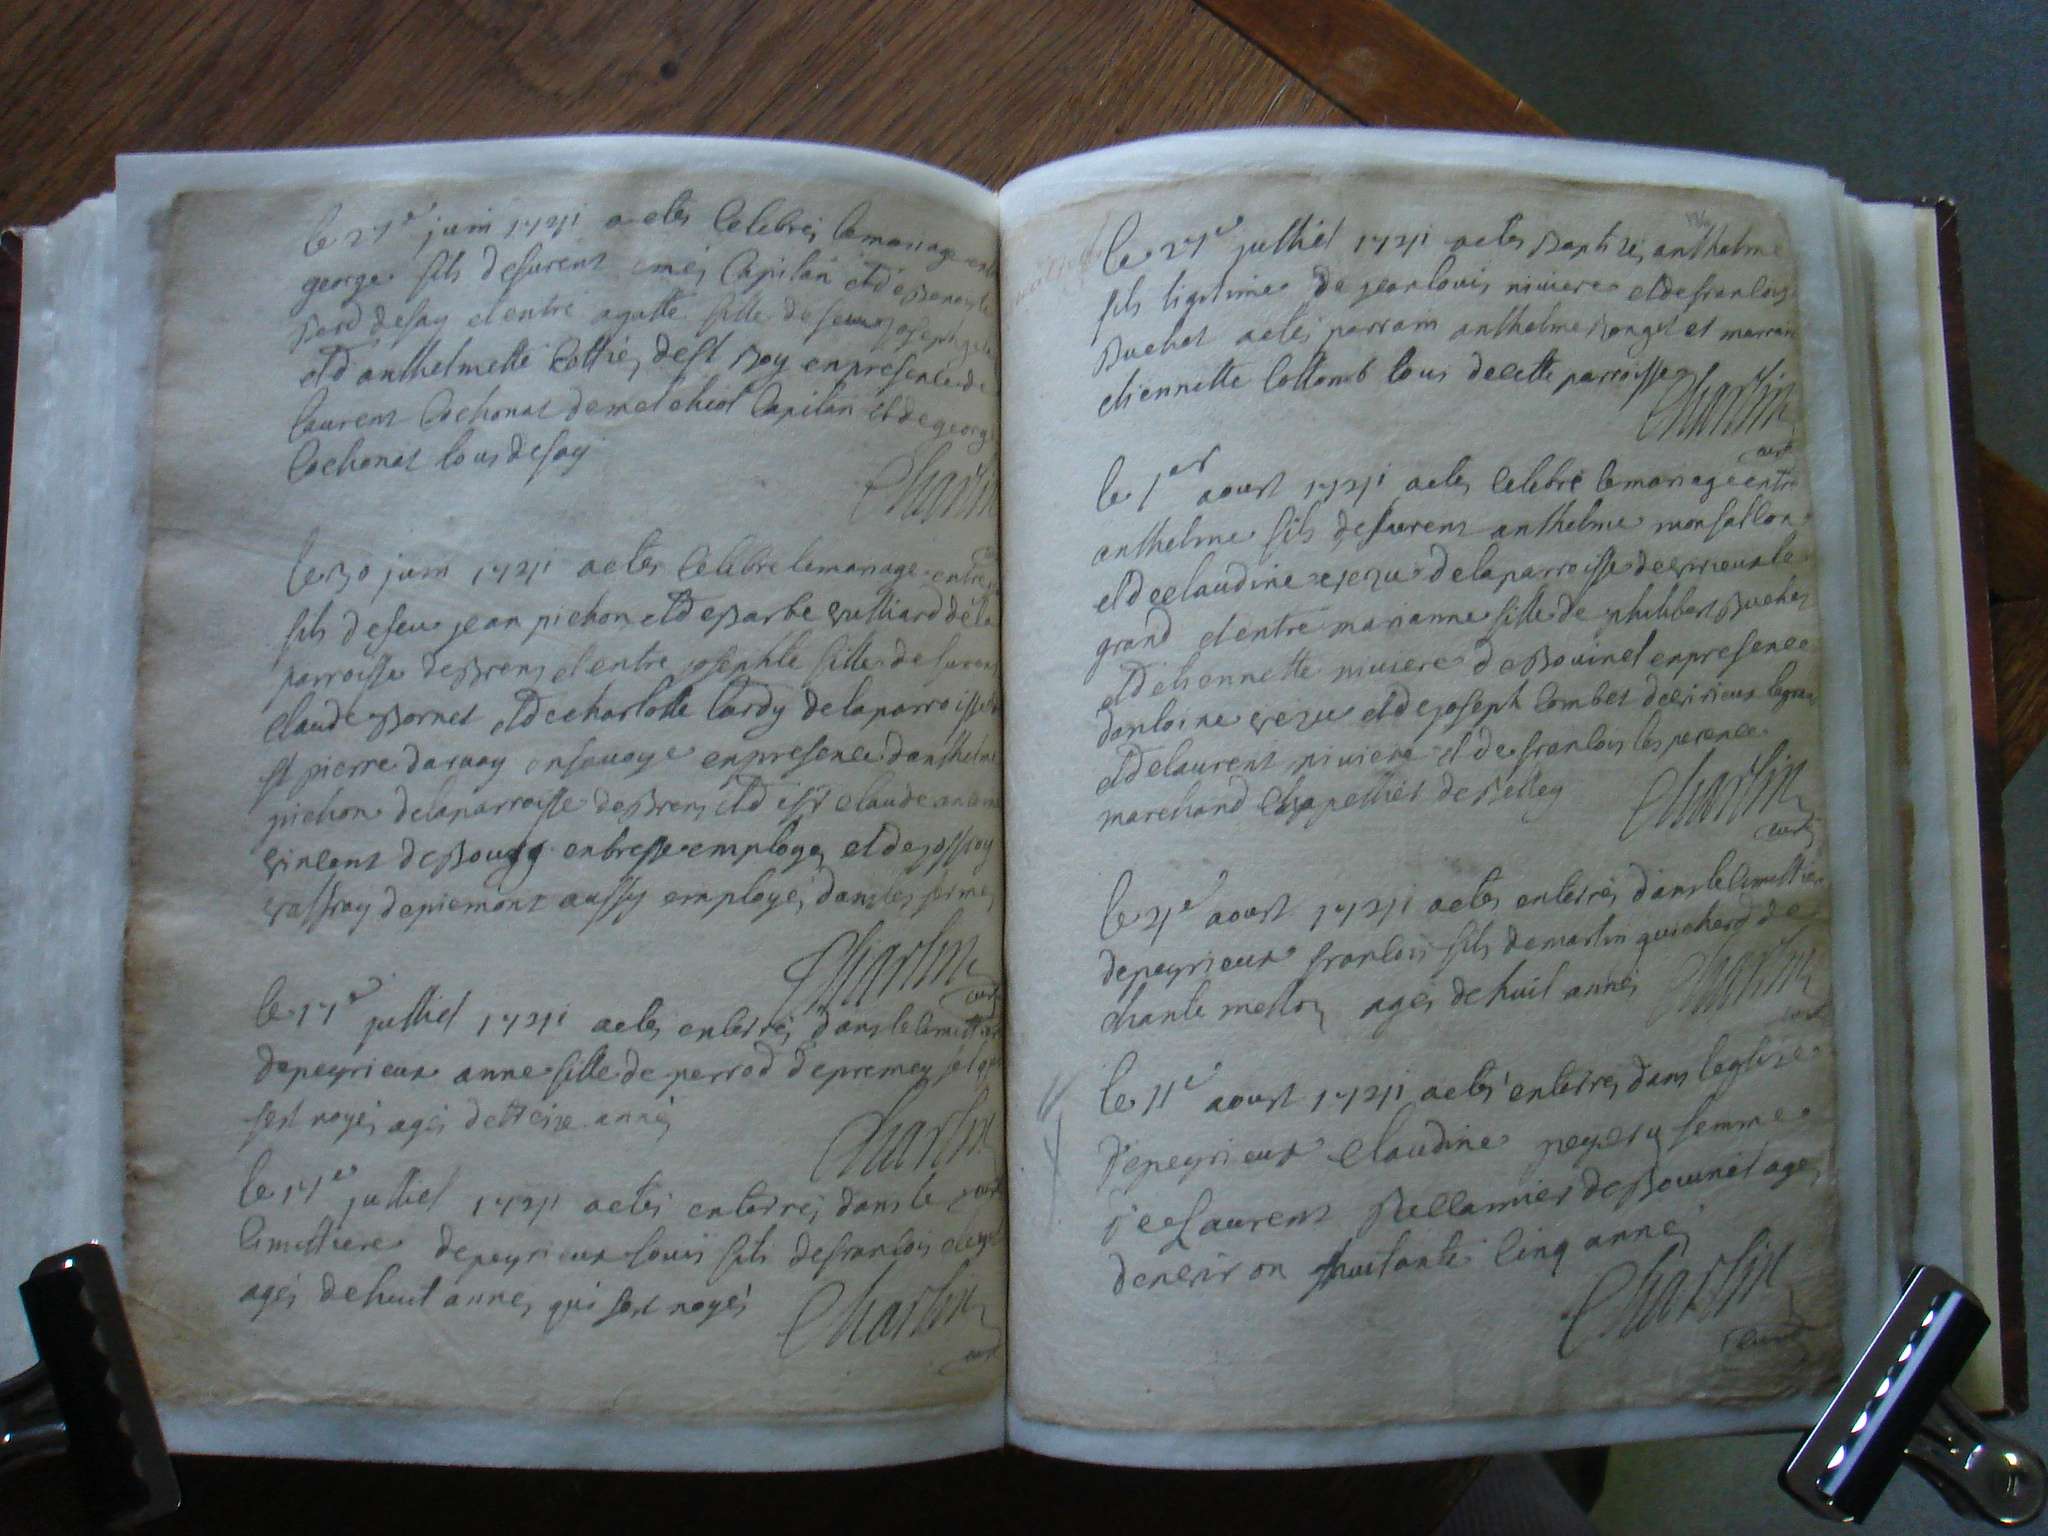 le 27e juin 1741 a etés celebrés le mariage entre
george fils de furent emé, Capitan et de
Bard de fay et entre agatte fille de feu joseph
et d'anthelmette Cottié, de st Boy en presence de
laurent Cochonat de melchiot Capitan et de george
Cochonat tous de fay
Charlin
le 30 juin 1741 a etés Celebré le mariage entre
fils de feu jean pichon et de Barbe gulliard de la
parroisse de Brens et entre josephte fille de furent
claude Bornet et de charlotte tardy de la parroisse
st pierre en savoye en presence d'anthelme
pichon de la parroisse de Brens et d claude
vincent de Bourg en bresse employé, et de
de piemont aussy employé, dans les fermes
Charlin
curé
le 17e julliet 1741 a etés enterrés dans le cimettiere
de peyrieux anne fille de perrod de premeysel qui
sest noyés agés de treize annés
Charlin
curé
le 17e julliet 1741 a etés enterrés dans le
cimettiere de peyrieux louis fils de francois
agés de huit annes qui sest noyés
Charlin
curé
le 27e julliet 1741 a etés Baptizés anthelme
fils ligitime de jean louis niviere et de francoise
Buchet a etés parrain anthelme Bonget et marraine
etiennette Cottomb tous de cette parroisse
Charlin
curé
le 1er aoust 1741 a etés Celebré le mariage entre
anthelme fils de furent anthelme monfallon
et de claudine de la parroisse de virieux le
grand et entre marianne fille de philibert Buchet
et d'etiennette niviere de Bovinel en presence
d'antoine et de joseph Combet de virieux le grand
et de laurent niviere et de francois
marchand chapellier de Belley
Charlin
curé
le 4e aoust 1741 a etés enterrés dans le Cimettiere
de peyrieux francois fils de martin guicherd de
chante merlo, agés de huit annés
Charlin
curé
le 11e aoust 1741 a etés enterrés dans l'eglize
de peyrieux claudine femme
de Laurent Bellamier de Bovinel agés
denviron huitante Cinq annés
Charlin
curé